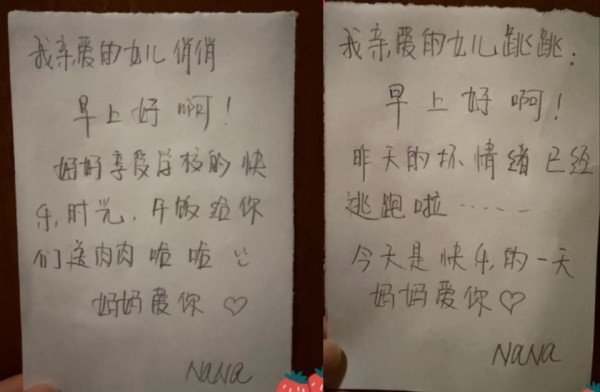 我亲爱的女儿俏俏
早上好啊!
好好享受学校的快
乐,时光,午饭给你
们送肉肉啦啦
妈妈爱你♡
NaNa
我亲爱的女儿跳跳:
早上好啊!
昨天的坏情绪已经
逃跑啦……
今天是快乐,的一天
妈妈爱你♡
NaNa